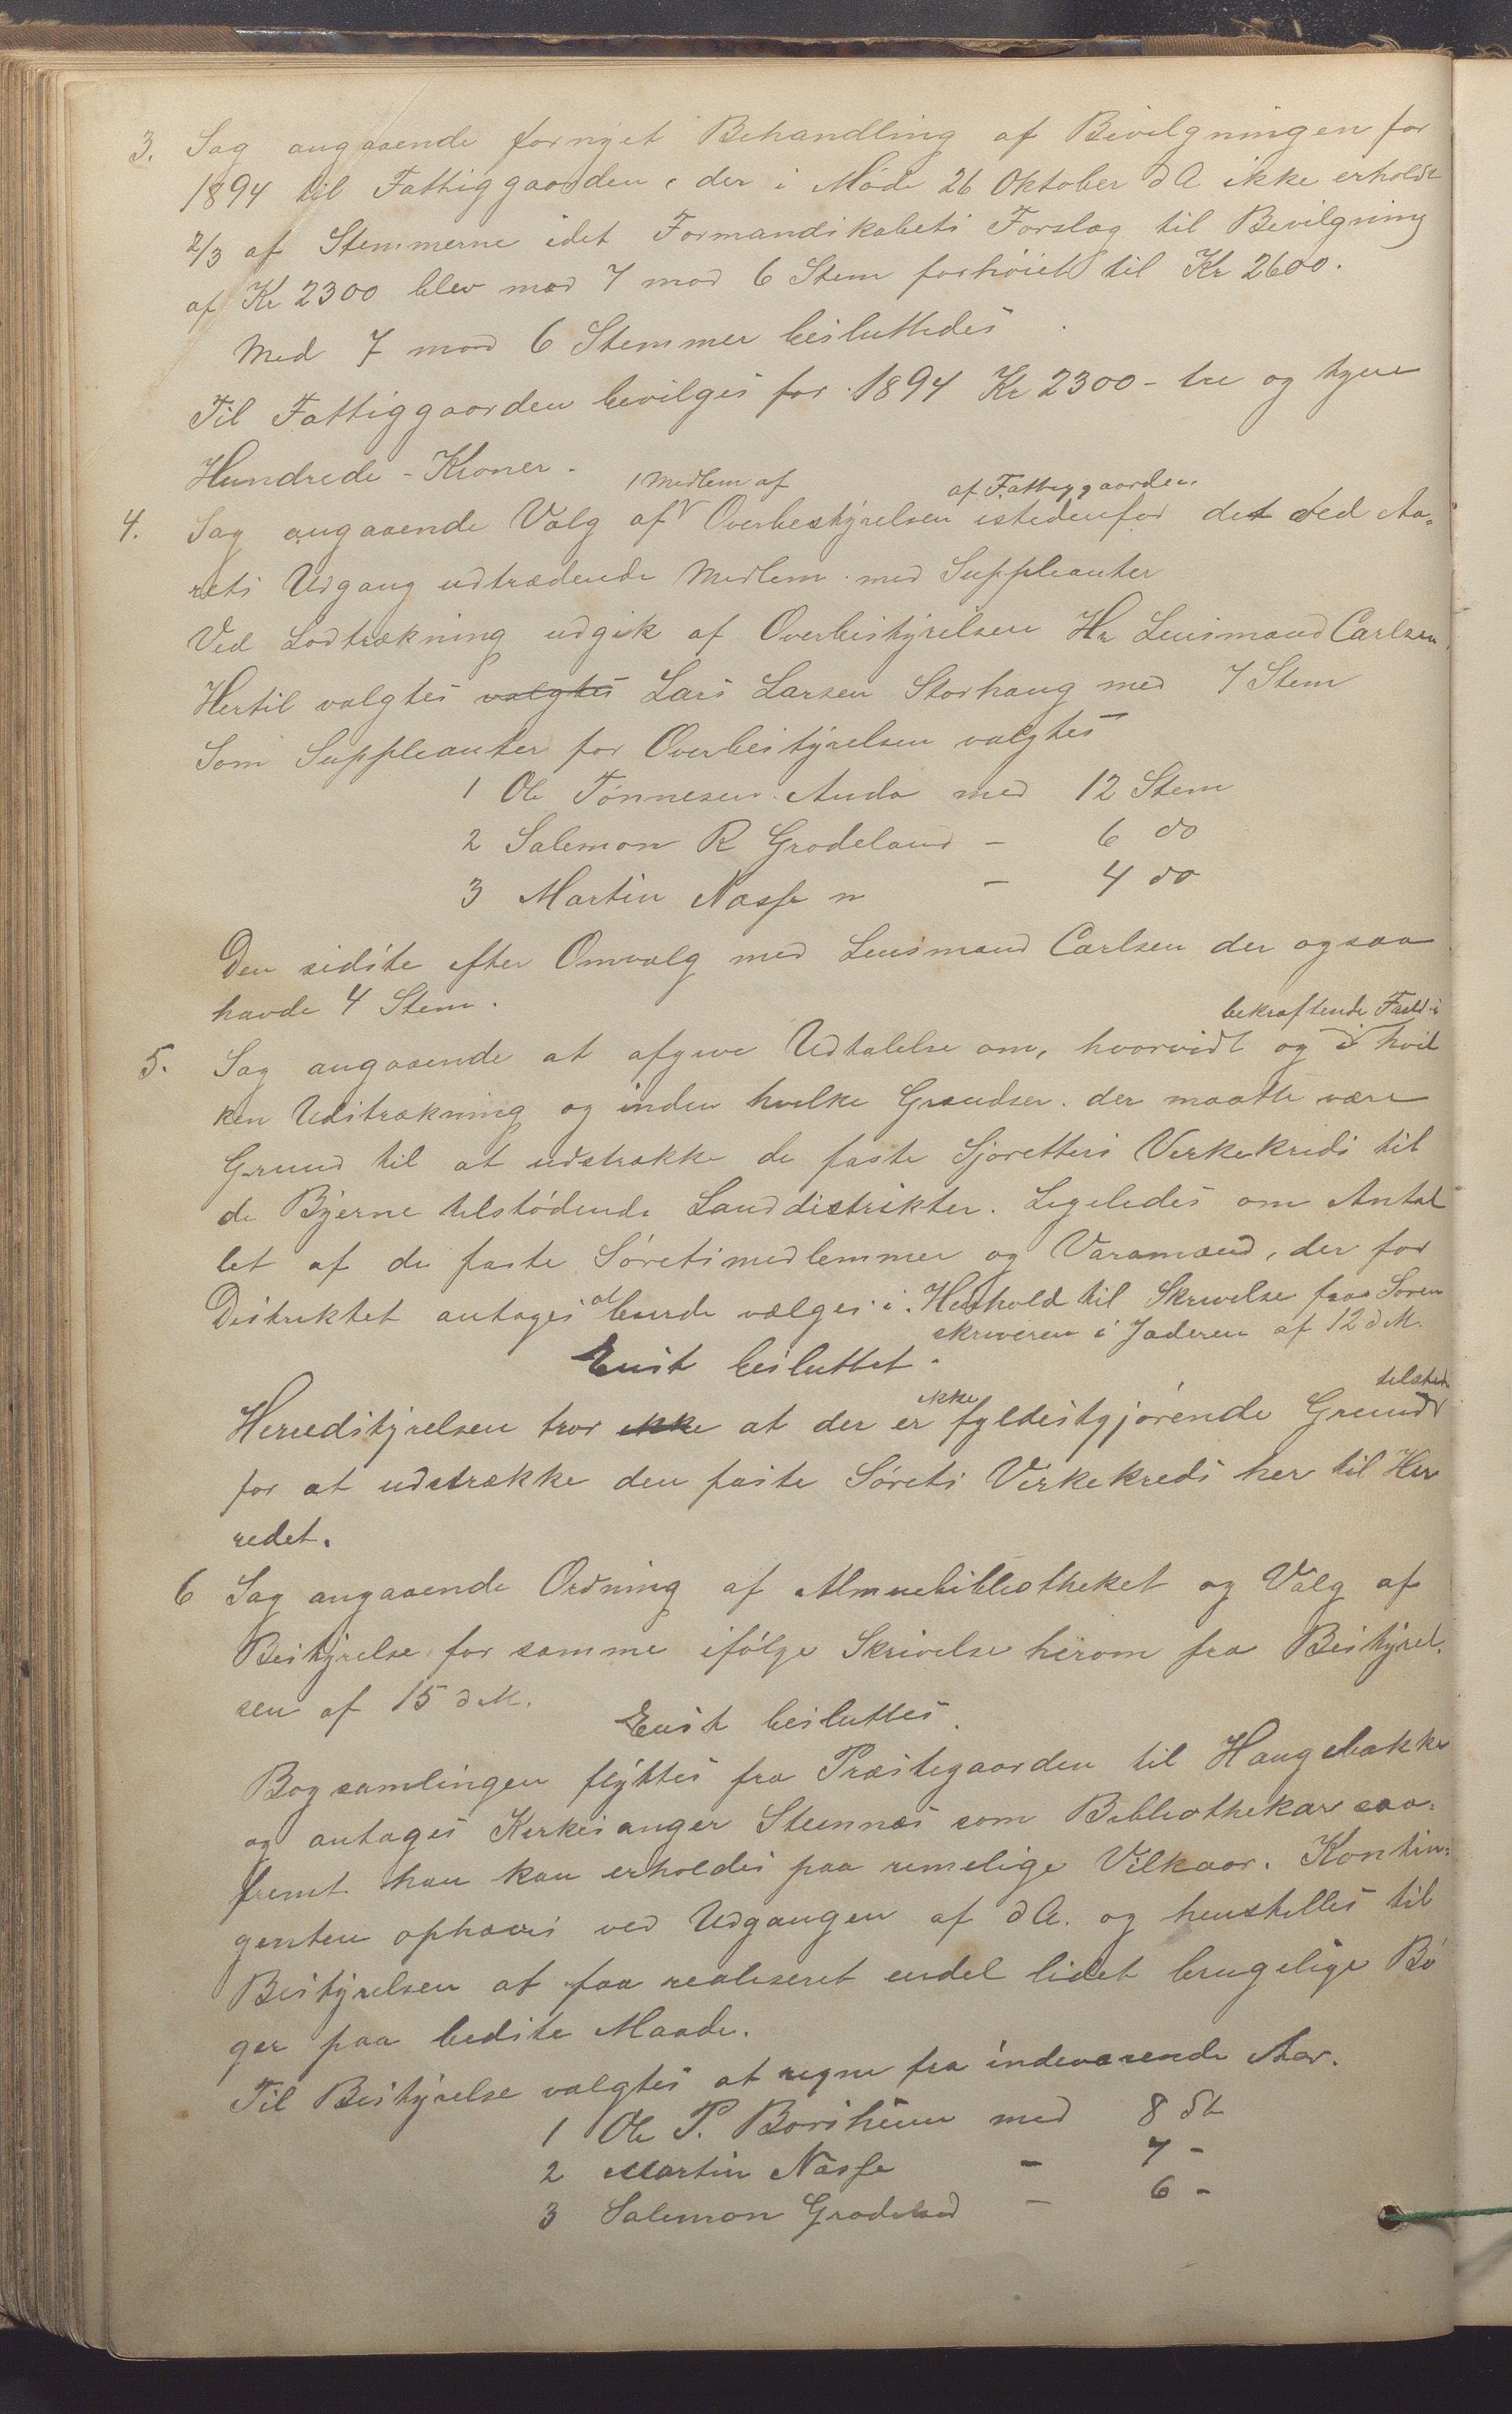 3. Sag angaaende fornyet Behandling af Bevilgningen for
1894 til Fattiggaarden, der i Møde 26 Oktober d A ikke erholdt
2/3 af Stemmerne idet Formandskabets Forslag til Bevilgning
af Kr 2300 blev med 7 mod 6 Stem forhøiet til Kr 2600.
Med 7 mod 6 Stemmer besluttedes
Til Fattiggaarden bevilges for 1894 Kr 2300 - tre og tyve
Hundrede - Kroner.
1 Medlem af af Fattiggaarden
4. Sag angaaende Valg af Overbestyrelsen istedenfor det ved Aa-
rets Udgang udtrædende Medlem med Suppleanter
Ved Lodtrækning udgik af Overbestyrelsen Hr Lensmand Carlsen.
Hertil valgtes valgtes Lars Larsen Storhaug med 7 Stem
Som Suppleanter for Overbestyrelsen valgtes
1 Ole Tønnesen Anda med 12 Stem
2 Salemon R Grødeland - 6 do
3 Martin Næsse - 4 do
Den sidste efter Omvalg med Lensmand Carlsen der ogsaa
havde 4 Stem.
bekræftende Fald i
5. Sag angaaende at afgive Udtalelse om, hvorvidt og i hvil
ken Udstrækning og inden hvilke Grændser der maatte være
Grund til at udstrække de faste Sjøretters Virkekreds til
de Byerne tilstødende Landdistrikter. Ligeledes om Antal
let af de faste Søretsmedlemmer og Varamænd, der for
Distriktet antages at burde vælges i Henhold til Skrivelse fra Soren
skriveren i Jæderen af 12 d M.
Enst besluttet.
ikke tilstede
Herredstyrelsen tror ikke at der er fyldestgjørende Grund
for at udstrække den faste Sørets Virkekreds her til Her
redet.
6 Sag angaaende Ordning af Almuebibliotheket og Valg af
Bestyrelse for samme ifølge Skrivelse herom fra Bestyrel.
sen af 15 d M.
Enst besluttes.
Bogsamlingen flyttes fra Præstegaarden til Haugebakke
og antages Kirkesanger Steennæs som Bibliothekar saa-
fremt han kan erholdes paa rimelige Vilkaar. Kontin-
genten ophæves ved Udgangen af d A. og henstilles til
Bestyrelsen at faa realiseret endel lidet brugelige Bø
ger paa bedste Maade.
Til Bestyrelse valgtes at regne fra indeværende Aar.
1 Ole P. Borsheim med 8 St
2 Martin Næsse - 7 -
3 Salemon Grødeland - 6 -